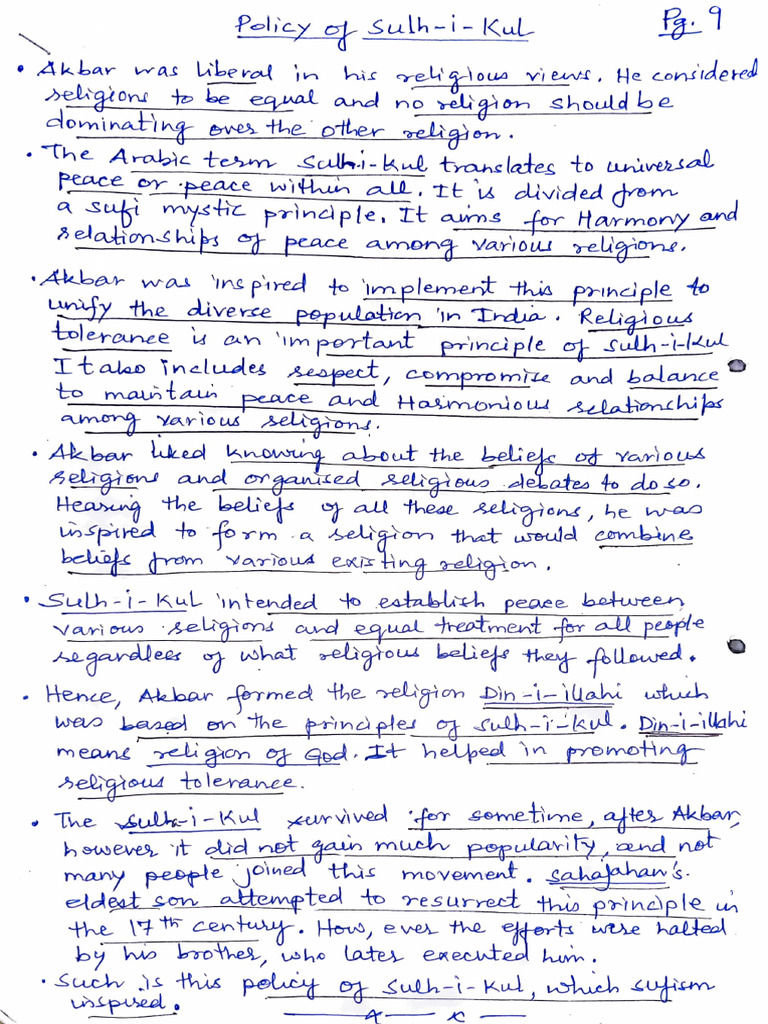 Policy of Sulh-i-Kul
Pg. 9
• Akbar was liberal in his religious views. He considered
religions to be equal and no religion should be
dominating over the other religion.
• The Arabic term Sulh-i-Kul translates to universal
peace or peace within all. It is divided from
a sufi mystic principle. It aims for Harmony and
relationships of peace among various religions.
• Akbar was inspired to implement this principle to
unify the diverse population in India. Religious
tolerance is an important principle of sulh-i-kul
It also includes respect, compromise and balance
to maintain peace and Harmonious relationships
among various religions.
• Akbar liked knowing about the beliefs of various
religions and organised religious debates to do so.
Hearing the beliefs of all these religions, he was
inspired to form a religion that would combine
beliefs from various existing religion.
• Sulh-i-Kul intended to establish peace between
various religions and equal treatment for all people
regardlees of what religious beliefs they followed.
• Hence, Akbar formed the religion Din-i-illahi which
was based on the principles of sulh-i-kul. Din-i-illahi
means religion of God. It helped in promoting
religious tolerance.
• The sulh-i-kul survived for sometime, after Akbar,
however it did not gain much popularity, and not
many people joined this movement. Sahajahan's
eldest son attempted to resurrect this principle in
the 17th century. How, ever the efforts were halted
by his brother, who later executed him.
• Such is this policy of Sulh-i-Kul, which sufism
inspired.